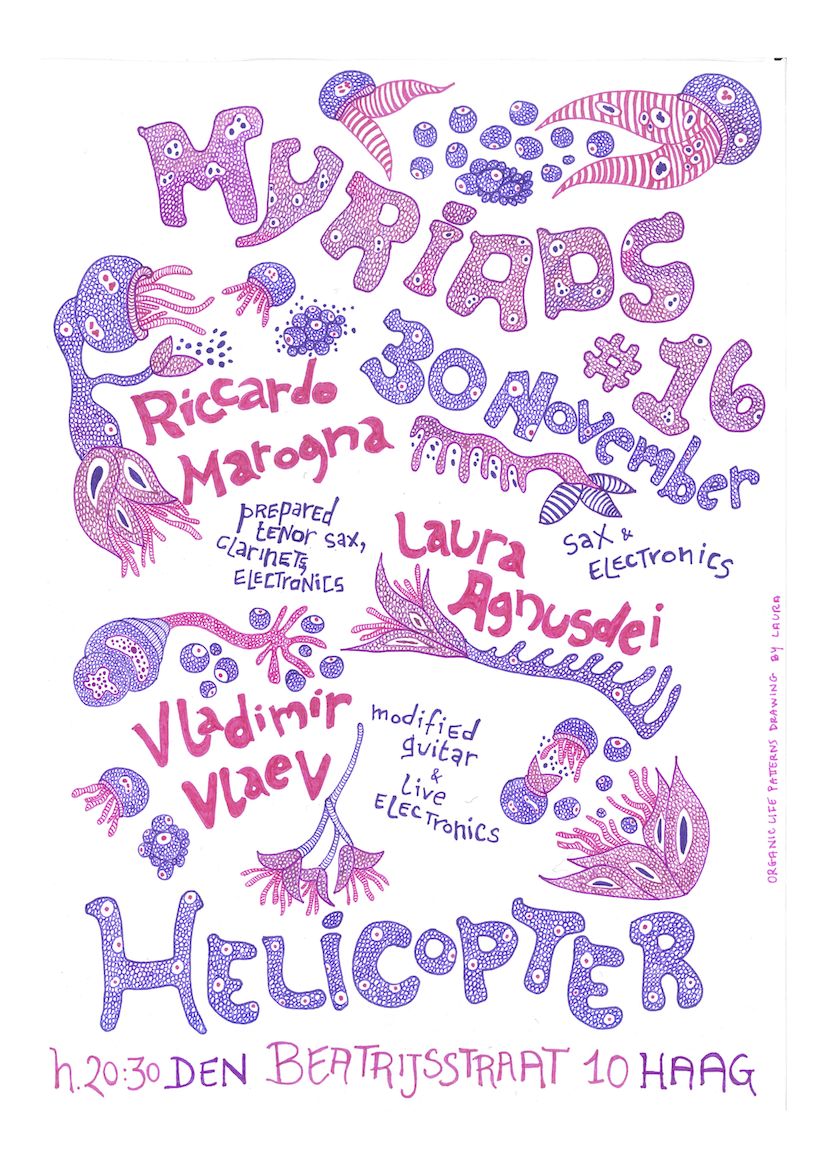 MyRiADS
#16
30 November
Riccardo
Marogna
pREpared
tENOR sax,
clarinets,
ELECTRONICS
Laura
Agnusdei
sax &
ELECTronics
Vladimir
Vlaev
modified
guitar
&
live
ELECTronics
HELiCOPTER
h.20:30 DEN BEATRIJSSTRAAT 10 HAAG
ORGANIC LIFE PATTERNS DRAWING BY LAURA